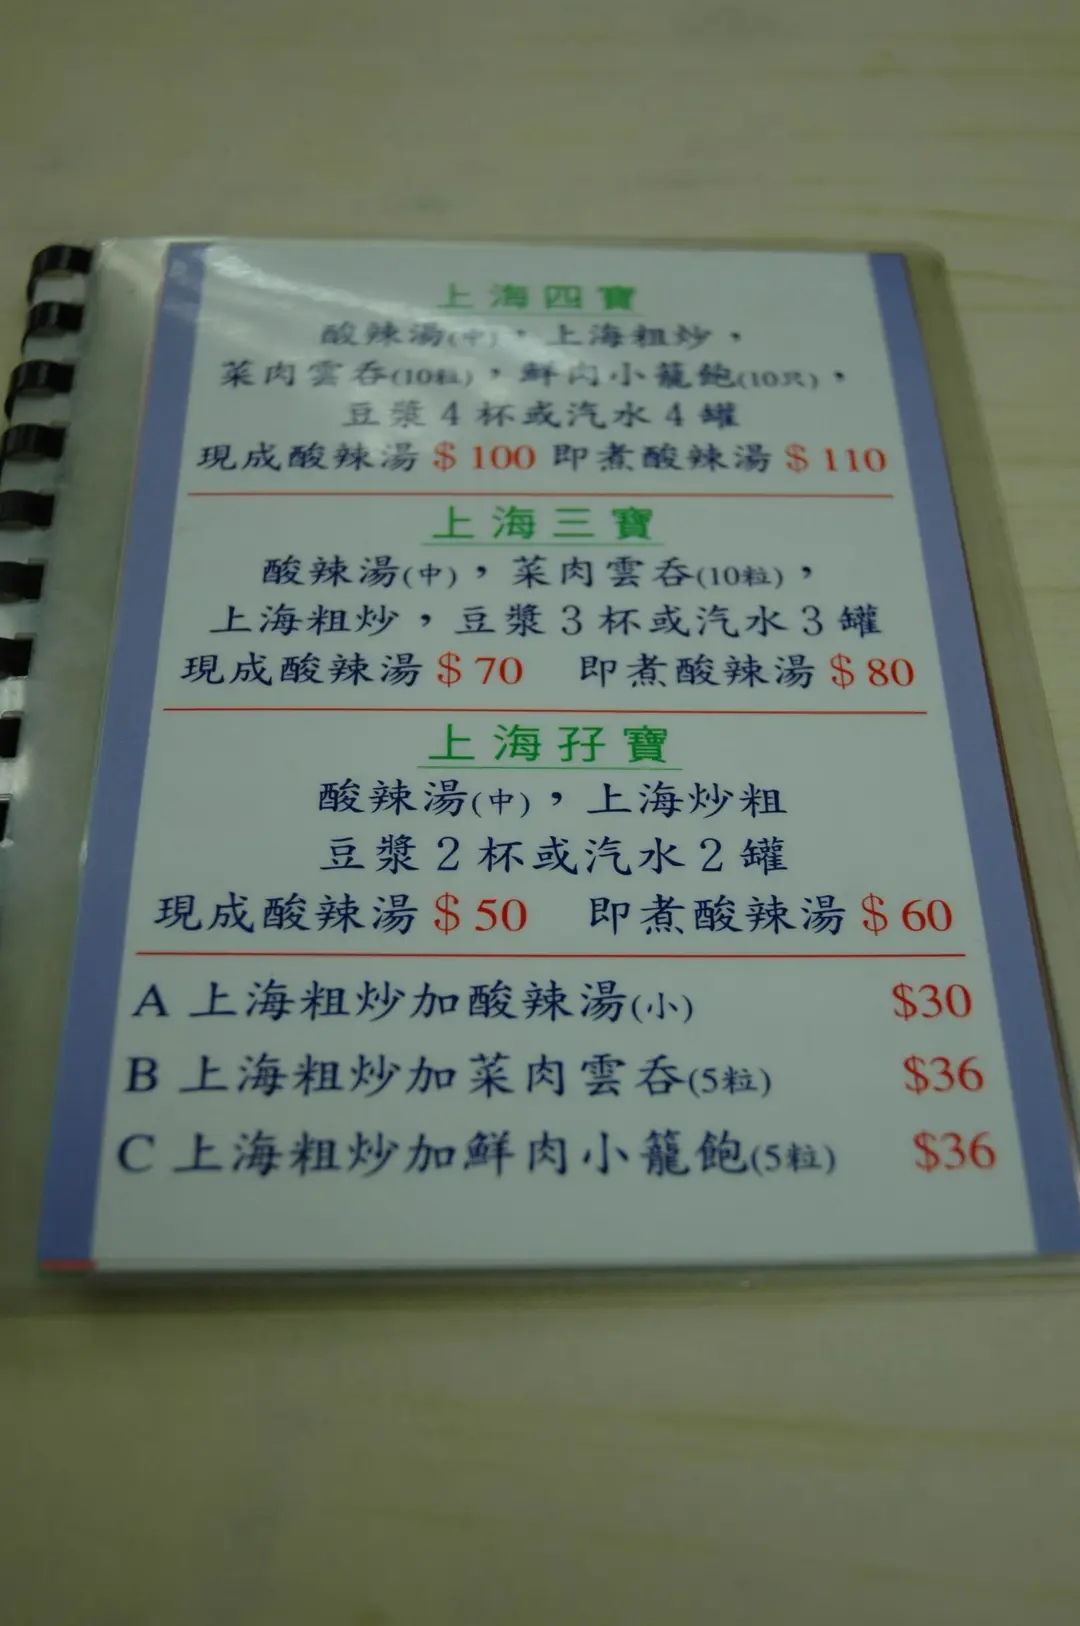 上海四寶
酸辣湯(中)，上海粗炒，
菜肉雲吞(10粒)，鮮肉小籠飽(10只)，
豆漿4杯或汽水4罐
現成酸辣湯$100 即煮酸辣湯$110
上海三寶
酸辣湯(中)，菜肉雲吞(10粒)，
上海粗炒，豆漿3杯或汽水3罐
現成酸辣湯$70 即煮酸辣湯$80
上海孖寶
酸辣湯(中)，上海炒粗
豆漿2杯或汽水2罐
現成酸辣湯$50 即煮酸辣湯$60
A 上海粗炒加酸辣湯(小) $30
B 上海粗炒加菜肉雲吞(5粒) $36
C 上海粗炒加鮮肉小籠飽(5粒) $36